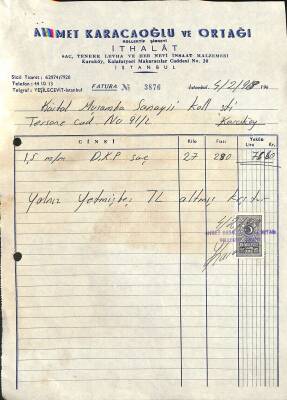 AHMET KARACAOĞLU VE ORTAĞI
KOLLEKTİF ŞİRKETİ
İTHALÂT
SAÇ, TENEKE LEVHA VE HER NEVİ İNŞAAT MALZEMESİ
Karaköy, Kalafatyeri Makaracılar Caddesi No. 30
İSTANBUL
Sicil Ticaret : 62974/7920
Telefon : 44 10 13
Telgraf : YEŞİLECEVİT-İstanbul
FATURA № 3876
İstanbul 5/2/968
Kartal Muşamba Sanayii Koll. şti
Tersane Cad No 91/2 Karaköy
CİNSİ Kilo Fiatı Yekûn
Lira Kr.
1,5 m/m D.K.P saç 27 280 75 60
Yalnız Yetmişbeş TL altmış krştur
5